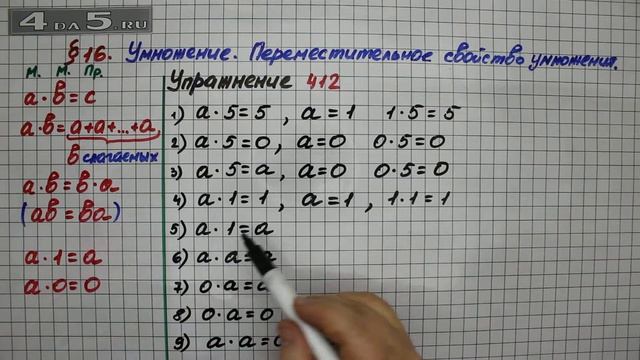 4DA5.RU
§ 16. Умножение. Переместительное свойство умножения.
М. М. Пр.
a · b = c
a · b = a + a + ... + a
b слагаемых
a · b = b · a
(ab = ba)
a · 1 = a
a · 0 = 0
Упражнение 412
1) a · 5 = 5 , a = 1 1 · 5 = 5
2) a · 5 = 0 , a = 0 0 · 5 = 0
3) a · 5 = a , a = 0 0 · 5 = 0
4) a · 1 = 1 , a = 1 , 1 · 1 = 1
5) a · 1 = a
6) a · a =
7) 0 · a =
8) 0 · a = 0
9) a · a =